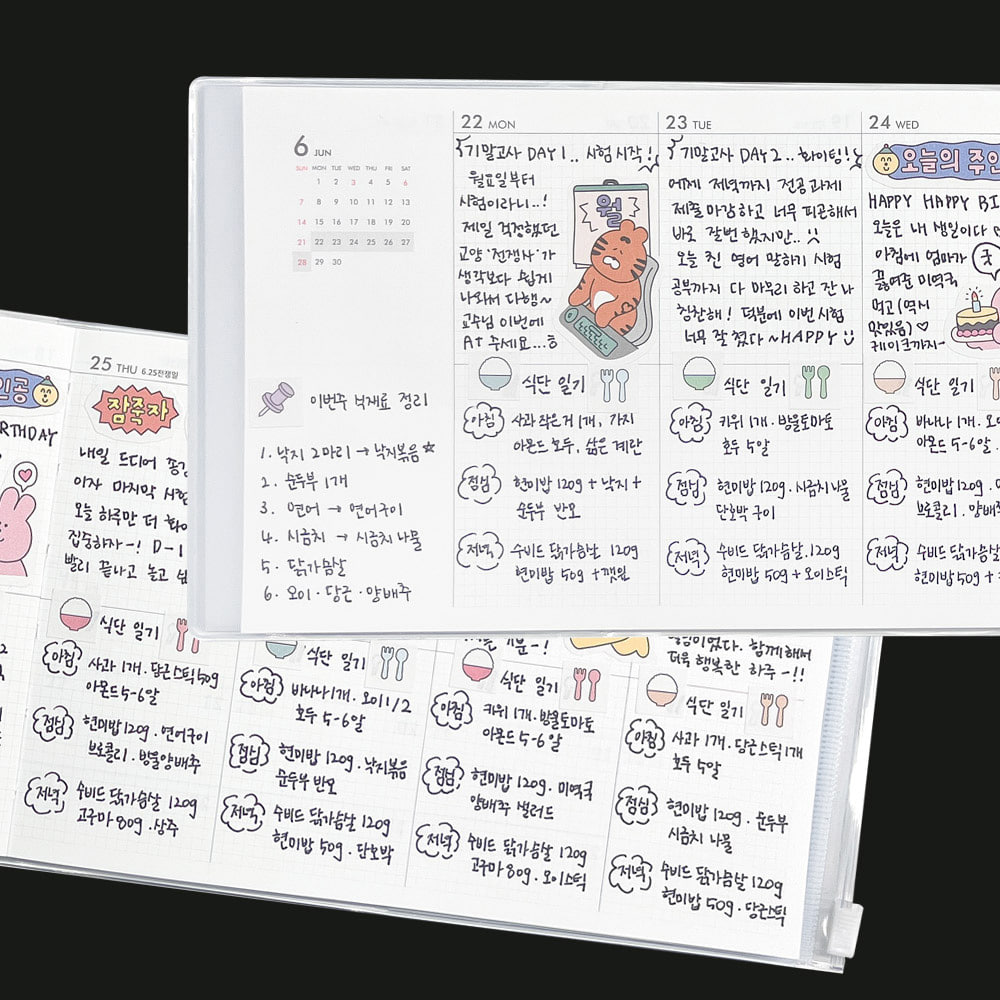 6 JUN
SUN MON TUE WED THU FRI SAT
1 2 3 4 5 6
7 8 9 10 11 12 13
14 15 16 17 18 19 20
21 22 23 24 25 26 27
28 29 30
이번주 식재료 정리
1. 낙지 2마리 → 낙지볶음☆
2. 순두부 1개
3. 연어 → 연어구이
4. 시금치 → 시금치 나물
5. 닭가슴살
6. 오이 · 당근 · 양배추
22 MON
기말고사 DAY 1.. 시험 시작!
월요일부터
시험이라니..!
제일 걱정했던
교양 '전쟁사'가
생각보다 쉽게
나와서 다행~
교수님 이번에
A+ 주세요...ㅎ
월
식단 일기
아침 사과 작은거 1개, 가지
아몬드 호두, 삶은 계란
점심 현미밥 120g + 낙지 +
순두부 반모
저녁 수비드 닭가슴살 120g
현미밥 50g + 깻잎
23 TUE
기말고사 DAY 2.. 화이팅!
어제 저녁까지 전공과제
제출 마감하고 너무 피곤해서
바로 잘뻔 했지만..
오늘 친 영어 말하기 시험
공부까지 다 마무리 하고 잔 나
칭찬해! 덕분에 이번 시험
너무 잘 쳤다 ~HAPPY
식단 일기
아침 키위 1개 · 방울토마토
호두 5알
점심 현미밥 120g · 시금치나물
단호박 구이
저녁 수비드 닭가슴살 · 120g
현미밥 50g + 오이스틱
24 WED
오늘의 주인
HAPPY HAPPY BI
오늘은 내 생일이다
아침에 엄마가
끓여준 미역국
먹고 (역시
맛있음) ♡
케이크까지~
식단 일기
아침 바나나 1개 · 오
아몬드 5-6알
점심 현미밥 120g ·
브로콜리 · 양배
저녁 수비드 닭가슴살
현미밥 50g +
인공
BIRTHDAY
25 THU 6.25전쟁일
잠죽자
내일 드디어 종강
이자 마지막 시험
오늘 하루만 더 화이
집중하자-! D-1
빨리 끝나고 놀고 싶
식단 일기
아침 사과 1개 · 당근스틱 50g
아몬드 5-6알
점심 현미밥 120g · 연어구이
브로콜리 · 방울양배추
저녁 수비드 닭가슴살 120g
고구마 80g · 상추
식단 일기
아침 바나나 1개 · 오이 1/2
호두 5-6알
점심 현미밥 120g · 낙지볶음
순두부 반모
저녁 수비드 닭가슴살 120g
현미밥 50g · 단호박
식단 일기
아침 키위 1개 · 방울토마토
아몬드 5-6알
점심 현미밥 120g · 미역국
양배추 샐러드
저녁 수비드 닭가슴살 120g
고구마 80g · 오이스틱
함께 해서
더욱 행복한 하루 ~!!
식단 일기
아침 사과 1개 · 당근스틱 1개
호두 5알
점심 현미밥 120g · 순두부
시금치 나물
저녁 수비드 닭가슴살 120g
현미밥 50g · 당근스틱